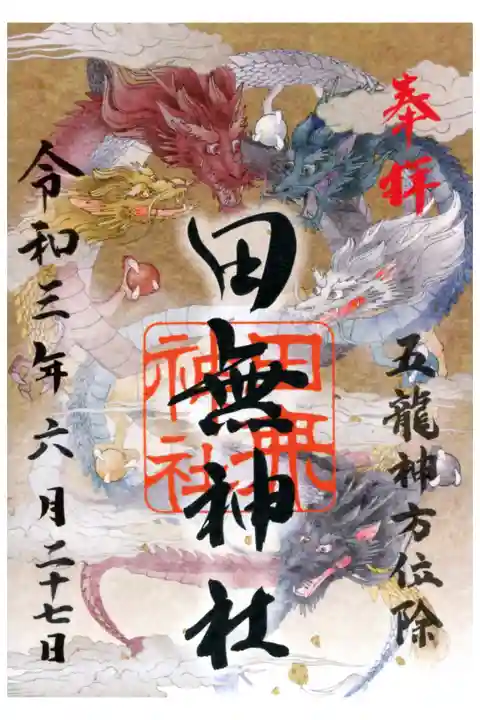 奉拝
五龍神方位除
田無神社
田無
神社
令和三年六月二十七日